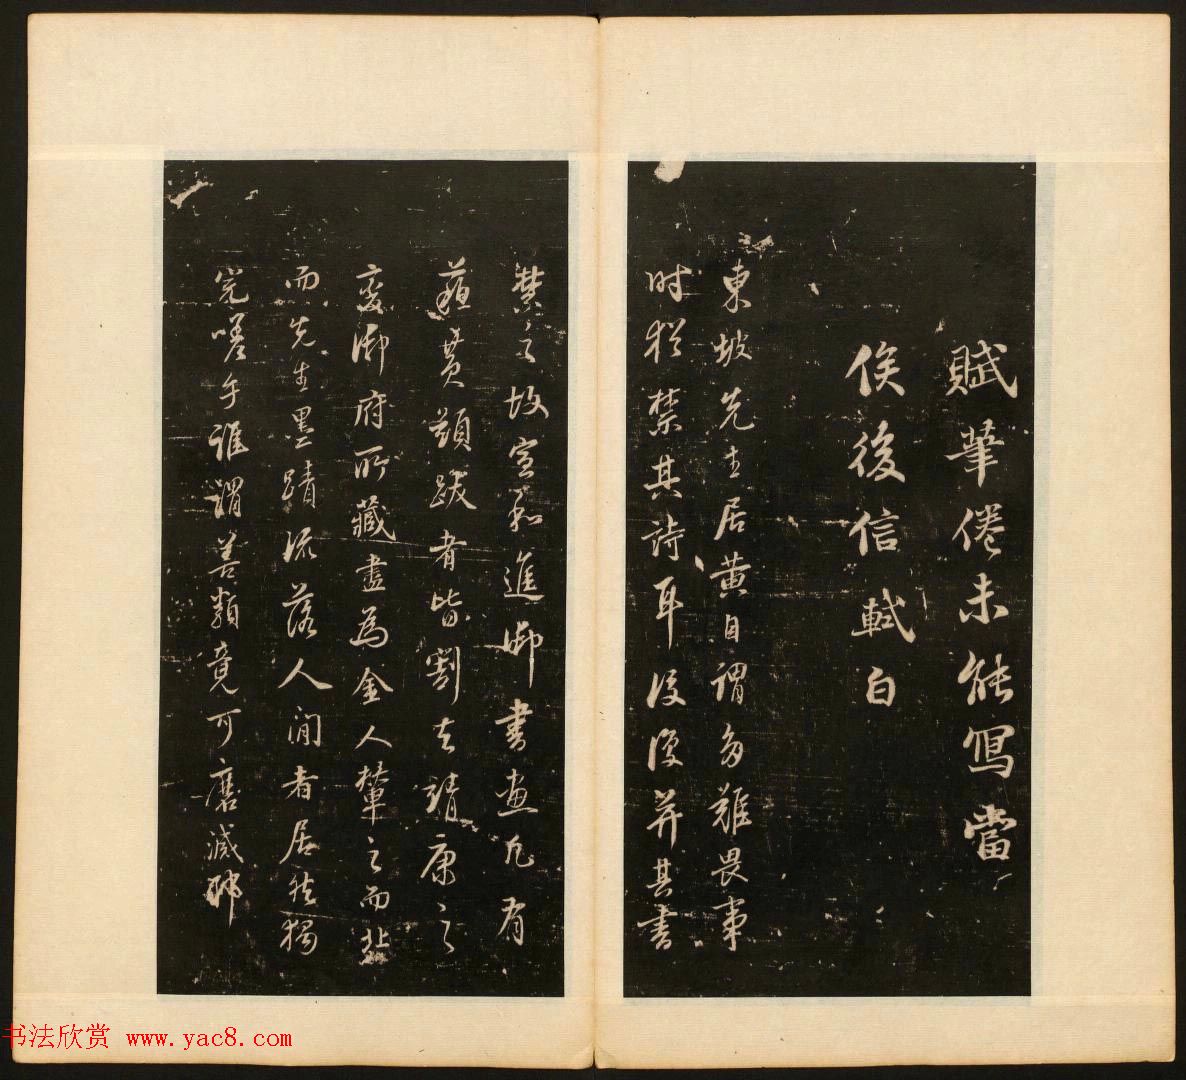 賦筆倦未能寫當
俟後信軾白
東坡先生居黃自謂多難畏事
时猶禁其詩耳後復并其書
禁之故宣和進御書畫凡有
蘇黃題跋者皆割去靖康之
變御府所藏盡為金人輦之而北
而先生墨蹟流落人間者居然獨
完嗟乎誰謂善類竟可磨滅耶
书法欣赏 www.yac8.com